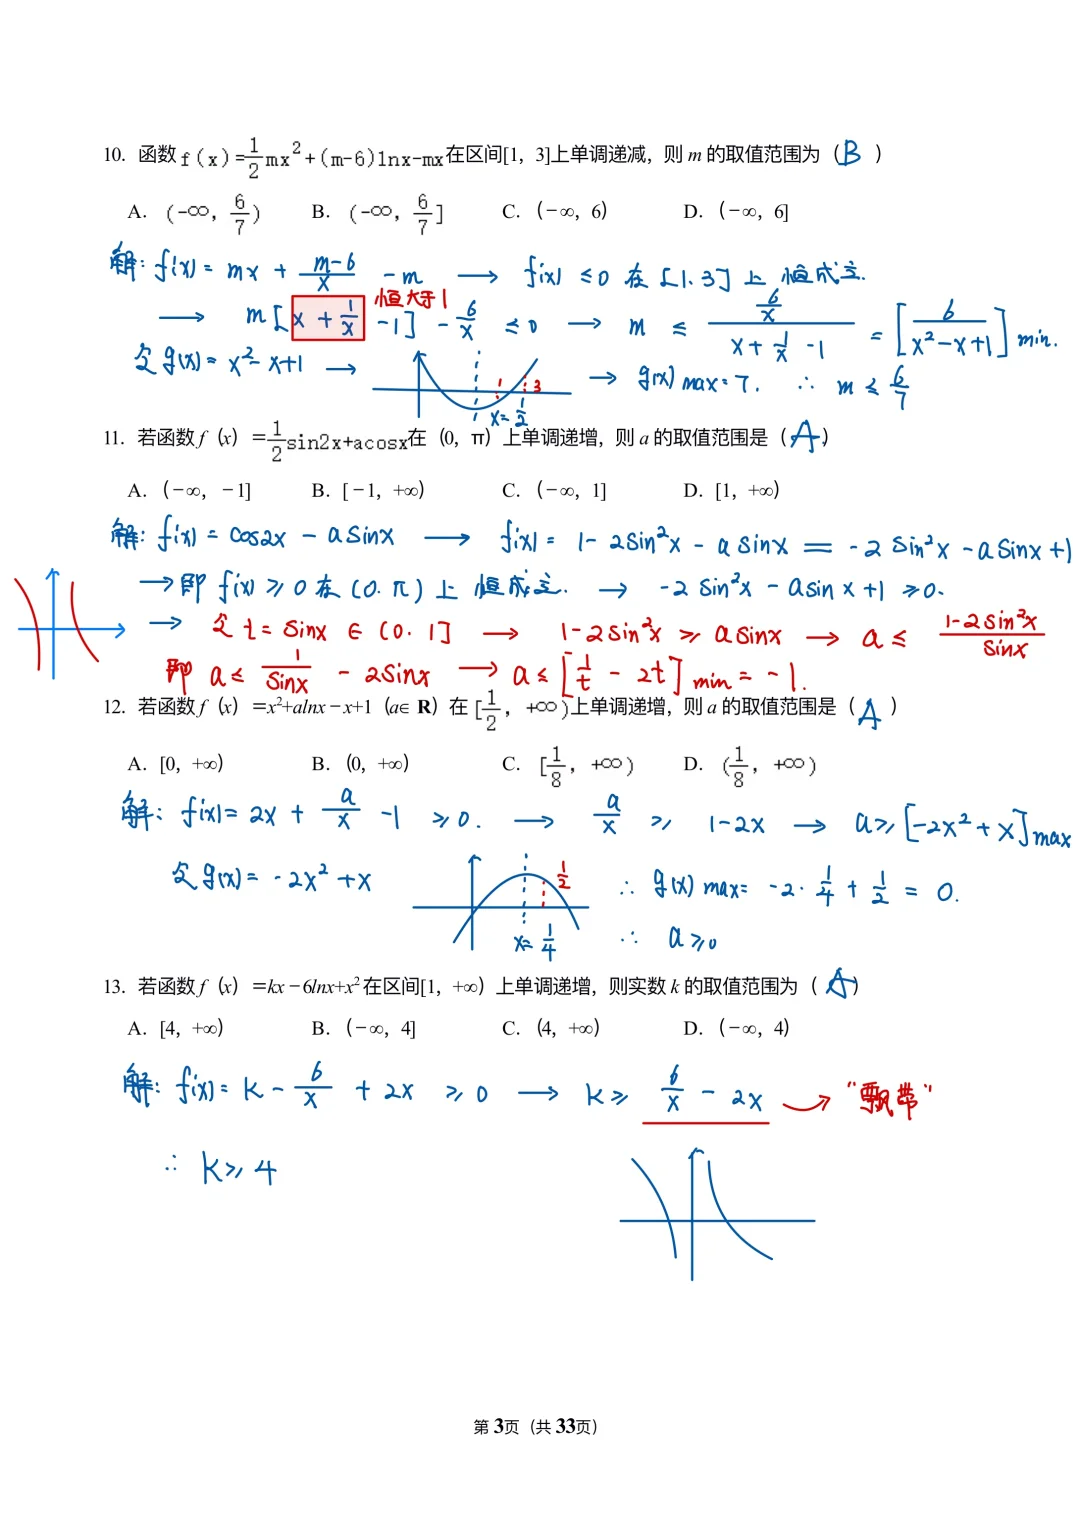 10. 函数f(x)=1/2mx²+(m-6)lnx-mx在区间[1，3]上单调递减，则 m 的取值范围为（B ）
A.（-∞，6/7） B.（-∞，6/7] C.（-∞，6） D.（-∞，6]
解：f'(x)= mx + (m-6)/x - m → f'(x) ≤0 在[1.3]上 恒成立.
恒大于1
→ m[x + 1/x -1] - 6/x ≤0 → m ≤ (6/x)/(x+1/x -1) = [6/(x²-x+1)]min.
令g(x)= x²-x+1 → 1 3 x=1/2 → g(x)max=7. ∴ m ≤ 6/7
11. 若函数 f（x）=1/2sin2x+acosx在（0，π）上单调递增，则 a 的取值范围是（A）
A.（-∞，-1] B. [-1，+∞） C.（-∞，1] D. [1，+∞）
解：f'(x)= cos2x - asinx → f'(x)= 1-2sin²x - asinx = -2sin²x -asinx+1
→即 f'(x) ≥0在(0.π)上 恒成立. → -2sin²x - asinx+1 ≥0.
→ 令t=sinx ∈(0.1] → 1-2sin²x ≥ asinx → a ≤ (1-2sin²x)/sinx
即 a≤ 1/sinx - 2sinx → a≤[1/t - 2t]min = -1.
12. 若函数 f（x）=x²+alnx-x+1（a∈R）在[1/2，+∞)上单调递增，则 a 的取值范围是（A）
A. [0，+∞） B.（0，+∞） C. [1/8，+∞) D. (1/8，+∞)
解：f'(x)= 2x + a/x -1 ≥0. → a/x ≥ 1-2x → a≥[-2x²+x]max
令g(x)= -2x²+x 1/2 x=1/4 ∴ g(x)max= -2·1/4 + 1/2 = 0.
∴ a≥0
13. 若函数 f（x）=kx-6lnx+x²在区间[1，+∞）上单调递增，则实数 k 的取值范围为（A）
A. [4，+∞） B.（-∞，4] C.（4，+∞） D.（-∞，4）
解：f'(x)= k - 6/x + 2x ≥0 → k≥ 6/x - 2x “飘带”
∴ k≥4
第 3页（共 33页）